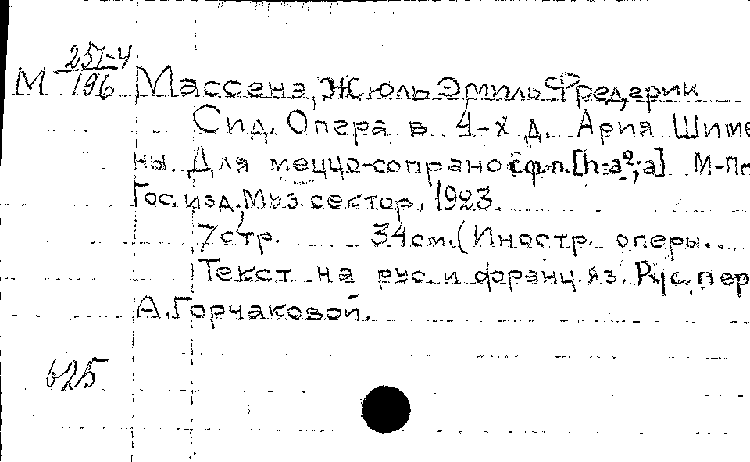 М 251-4/196 Массенэ, Жюль Эмиль Фредерик
Сид. Опера в 4-х д. Ария Шиме
ны. Для меццо-сопрано с ф.п. [h-a²; a] М-Пг
Гос. изд. Муз сектор, 1923.
7 стр. 34 см. (Иностр. оперы..
Текст на рус. и франц. яз. Рус. пер
А. Горчаковой.
625